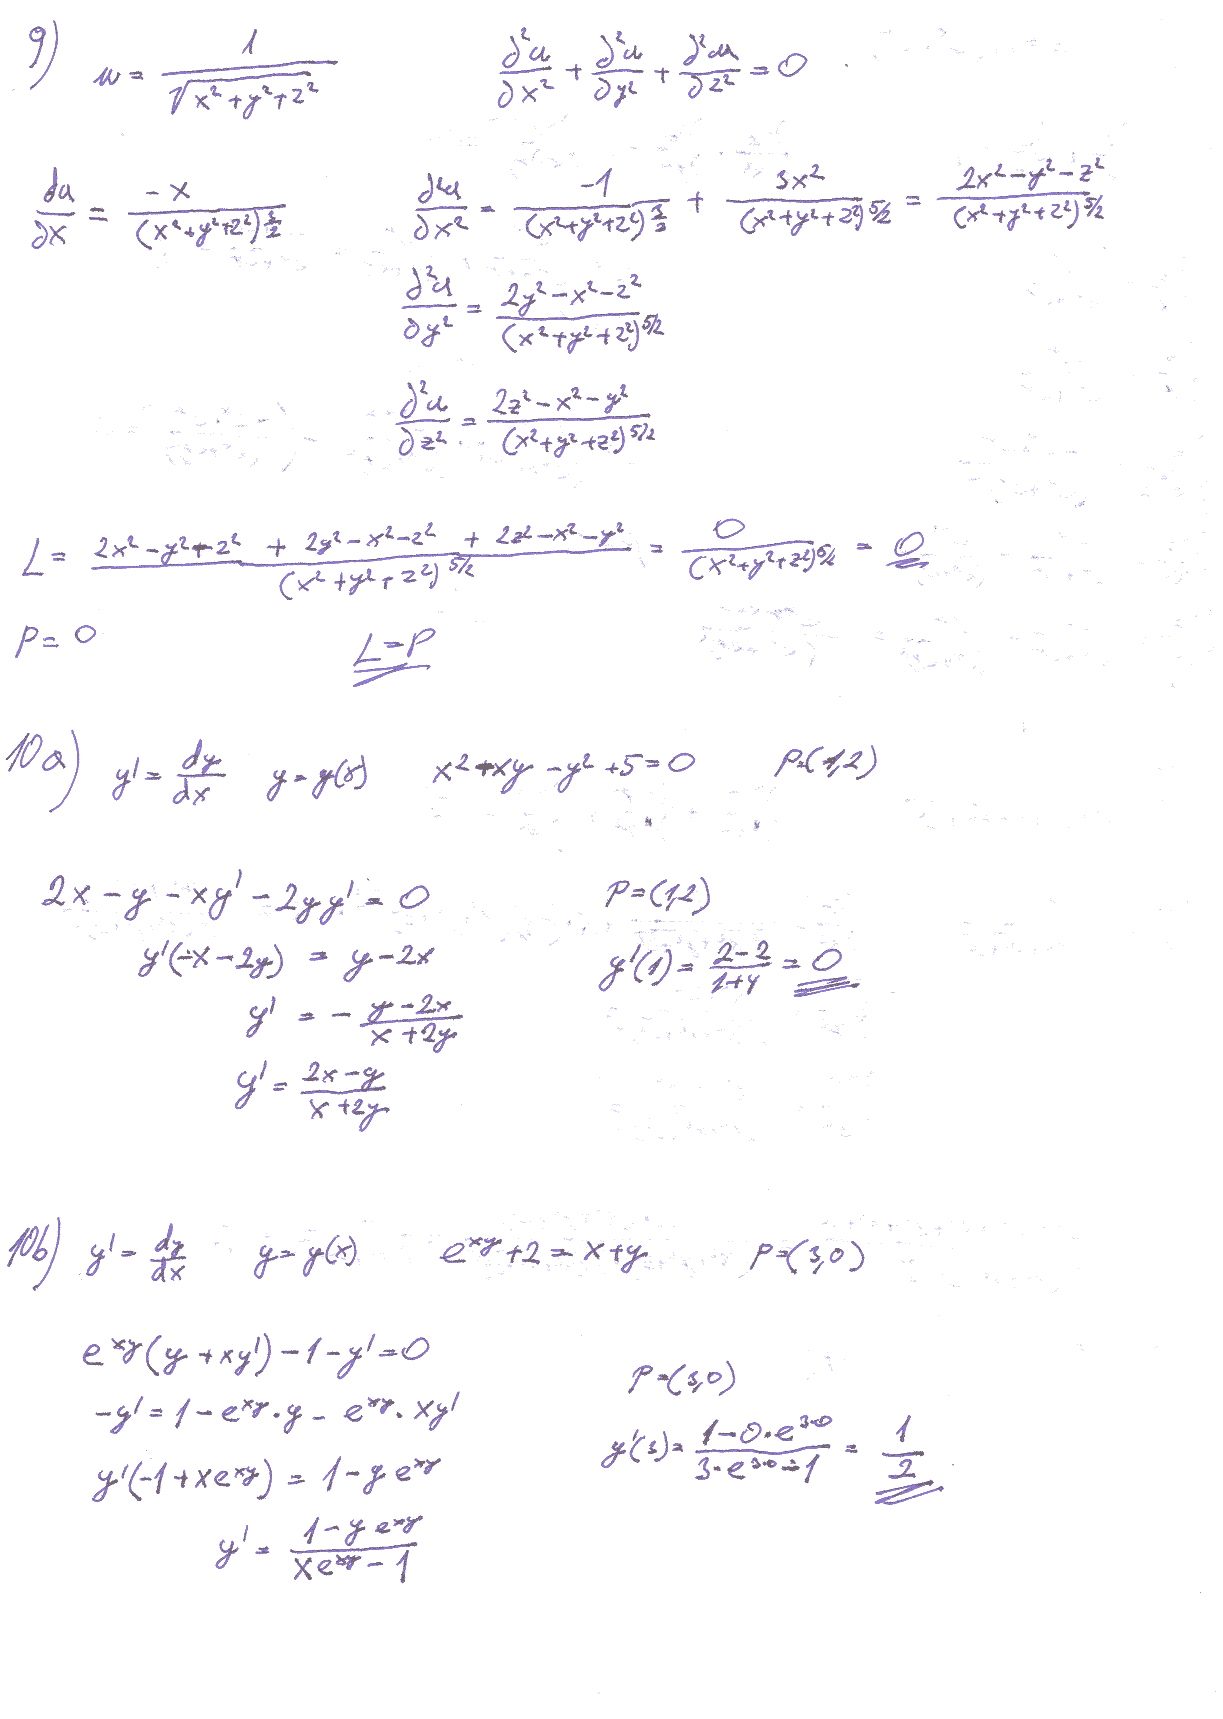 9) u = 1/√(x²+y²+z²)   ∂²u/∂x² + ∂²u/∂y² + ∂²u/∂z² = 0
∂u/∂x = -x/(x²+y²+z²)^(3/2)   ∂²u/∂x² = -1/(x²+y²+z²)^(3/2) + 3x²/(x²+y²+z²)^(5/2) = (2x²-y²-z²)/(x²+y²+z²)^(5/2)
∂²u/∂y² = (2y²-x²-z²)/(x²+y²+z²)^(5/2)
∂²u/∂z² = (2z²-x²-y²)/(x²+y²+z²)^(5/2)
L = (2x²-y²-z² + 2y²-x²-z² + 2z²-x²-y²)/(x²+y²+z²)^(5/2) = 0/(x²+y²+z²)^(5/2) = 0
P = 0   L = P
10a) y' = dy/dx   y = y(x)   x²-xy-y²+5=0   P=(1,2)
2x - y - xy' - 2yy' = 0   P=(1,2)
y'(-x-2y) = y-2x   y'(1) = (2-2)/(1+4) = 0
y' = - (y-2x)/(x+2y)
y' = (2x-y)/(x+2y)
10b) y' = dy/dx   y = y(x)   e^(xy)+2 = x+y   P=(3,0)
e^(xy)(y+xy')-1-y'=0   P=(3,0)
-y' = 1-e^(xy)·y - e^(xy)·xy'
y'(-1+xe^(xy)) = 1-ye^(xy)   y'(3) = (1-0·e^(3·0))/(3·e^(3·0)-1) = 1/2
y' = (1-ye^(xy))/(xe^(xy)-1)